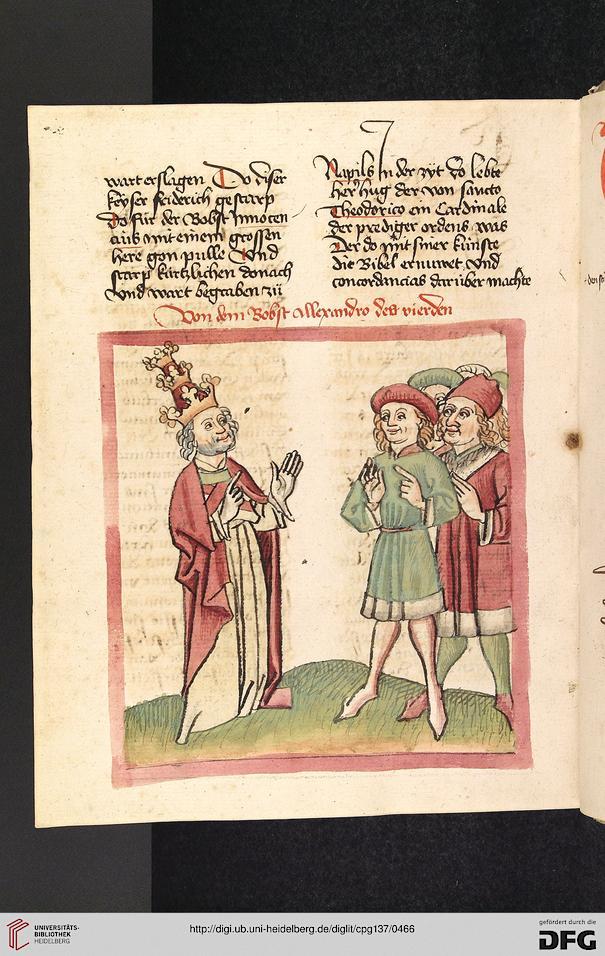 wart erslagen Do diser
keyser friderich gestarp
do für der Bobst Innocen
cius mit einem grossen
here gon pulle Und
starp kürtzlichen donach
und wart begraben zü
Napils In der zyt do lebte
her hug der von sancto
Theodorico ein Cardinale
der prediger ordens was
Der do mit siner künste
die Bibel ernuwet und
concordancias darüber machte
Von dem Bobst Allexandro des vierden
UNIVERSITÄTS-
BIBLIOTHEK
HEIDELBERG
http://digi.ub.uni-heidelberg.de/diglit/cpg137/0466
gefördert durch die
DFG